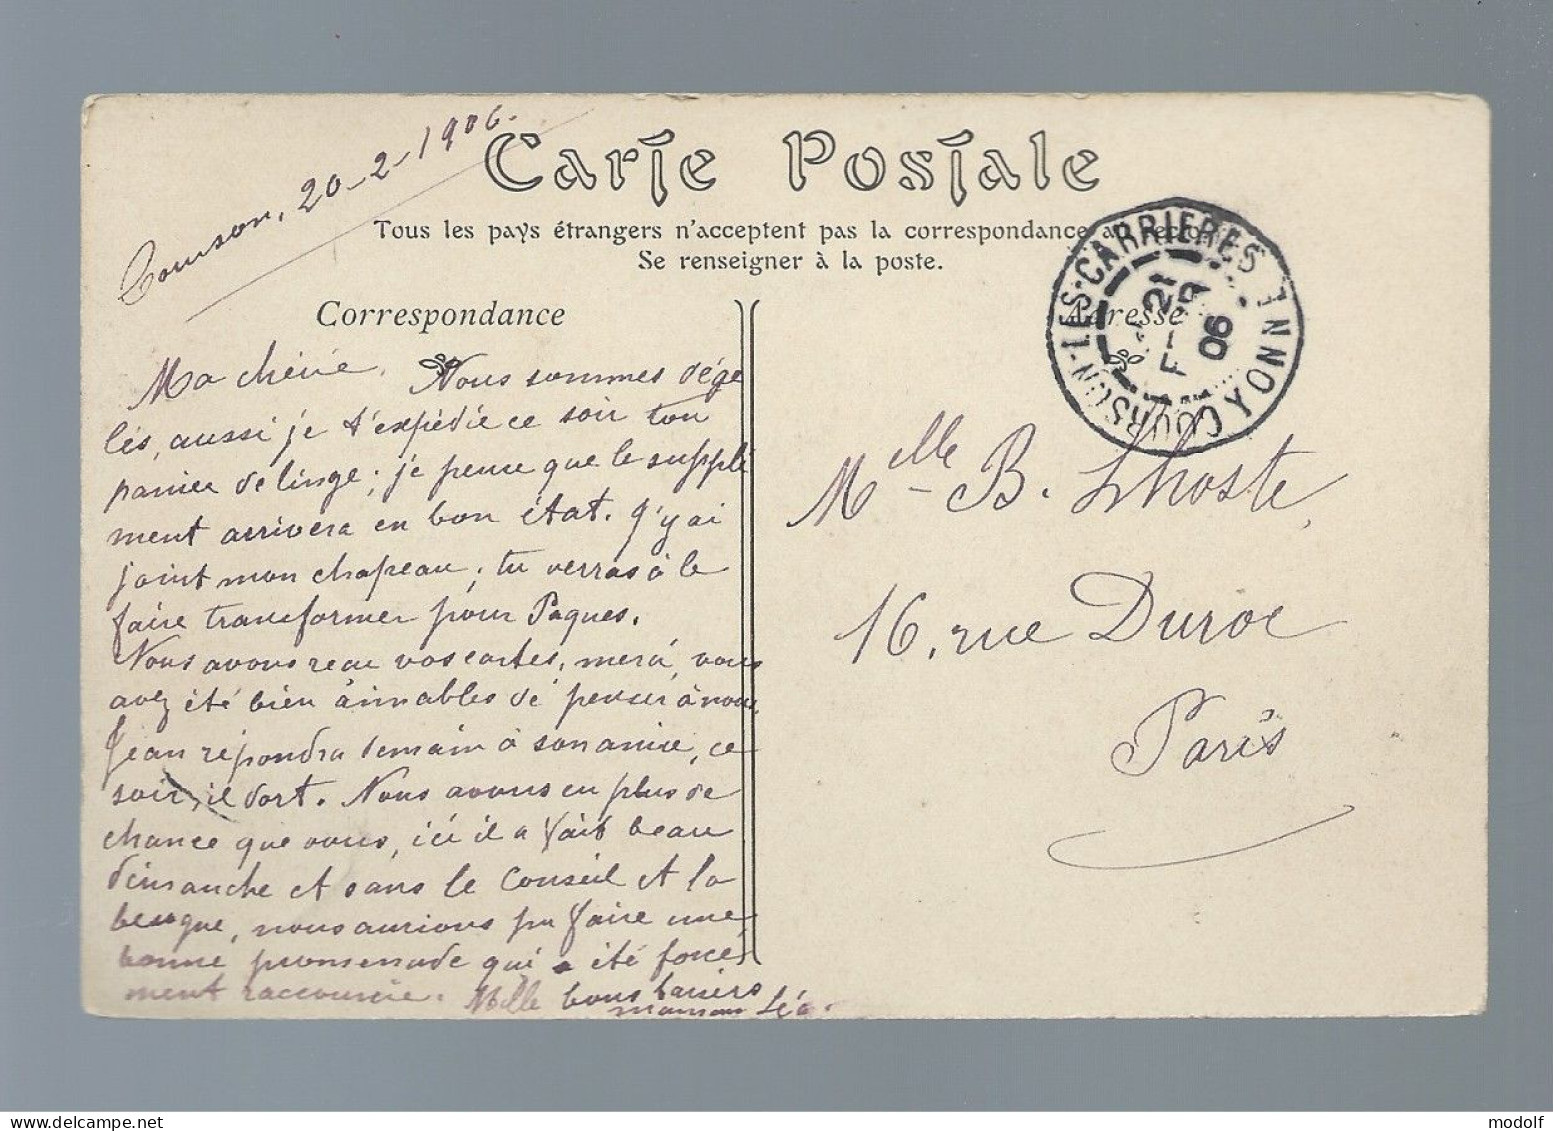 Courson, 20-2-1906.
Carte Postale
Tous les pays étrangers n'acceptent pas la correspondance au recto
Se renseigner à la poste.
Correspondance
Ma chérie. Nous sommes dége
lés, aussi je t'expédie ce soir ton
panier de linge; je pense que le supplé
ment arrivera en bon état. J'y ai
joint mon chapeau; tu verras à le
faire transformer pour Paques.
Nous avons reçu vos cartes, merci, vous
avez été bien aimables de penser à nous.
Jean répondra demain à son amie, ce
soir, il dort. Nous avons eu plus de
chance que vous, ici il a fait beau
dimanche et sans le Conseil et la
besogne, nous aurions pu faire une
bonne promenade qui a été forcé
ment raccourcie. Mille bons baisers
maman Léo.
Adresse
COURSON-LES-CARRIERES YONNE
21
06
Melle B. Lhoste,
16, rue Duroc
Paris
delcampe.net
modolf